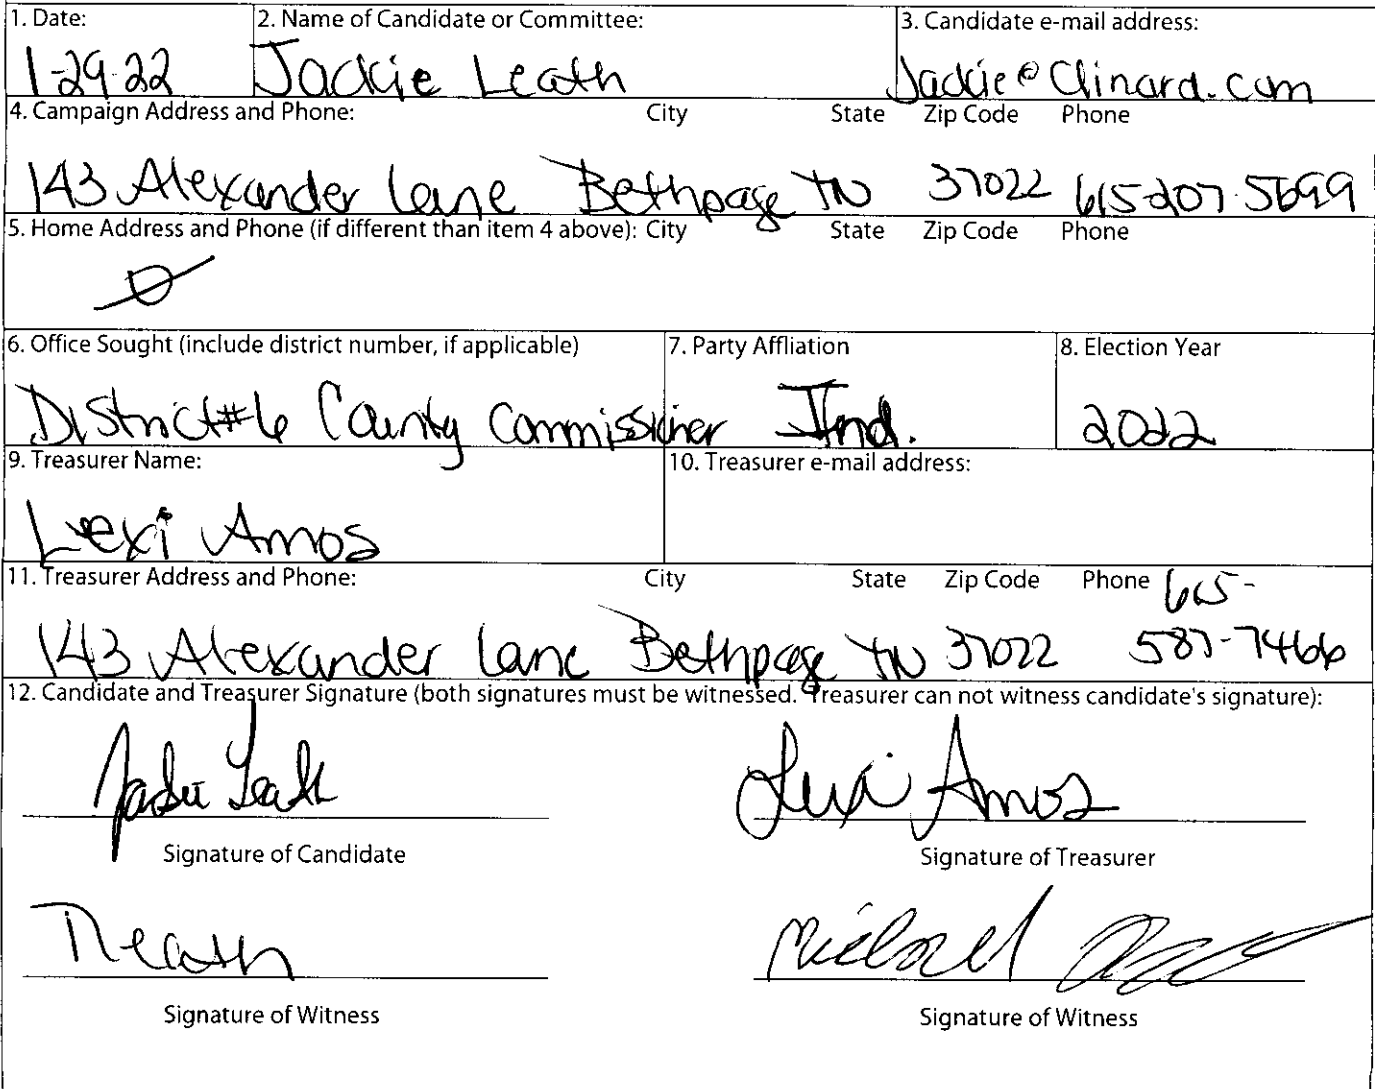 1. Date: 2. Name of Candidate or Committee: 3. Candidate e-mail address:
1-29-22 Jackie Leath Jackie@Clinard.com
4. Campaign Address and Phone: City State Zip Code Phone
143 Alexander Lane Bethpage TN 37022 615-207-5699
5. Home Address and Phone (if different than item 4 above): City State Zip Code Phone
6. Office Sought (include district number, if applicable) 7. Party Affliation 8. Election Year
District #6 County Commissioner Ind. 2022
9. Treasurer Name: 10. Treasurer e-mail address:
Lexi Amos
11. Treasurer Address and Phone: City State Zip Code Phone 615-
143 Alexander Lane Bethpage TN 37022 587-7466
12. Candidate and Treasurer Signature (both signatures must be witnessed. Treasurer can not witness candidate's signature):
Jackie Leath Lexi Amos
Signature of Candidate Signature of Treasurer
Michael
Signature of Witness Signature of Witness